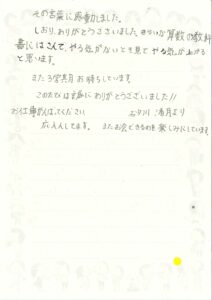 その言葉に感動しました。
しおり、ありがとうございました。さっそく算数の教科
書にはさんで、やる気がないとき見てやる気が上がる
と思います。
また3学期月お待ちしています
このたびは本当にありがとうございました!!
お仕事がんばってください
より
おうえんしてます。またお会できるのを楽しみにしています